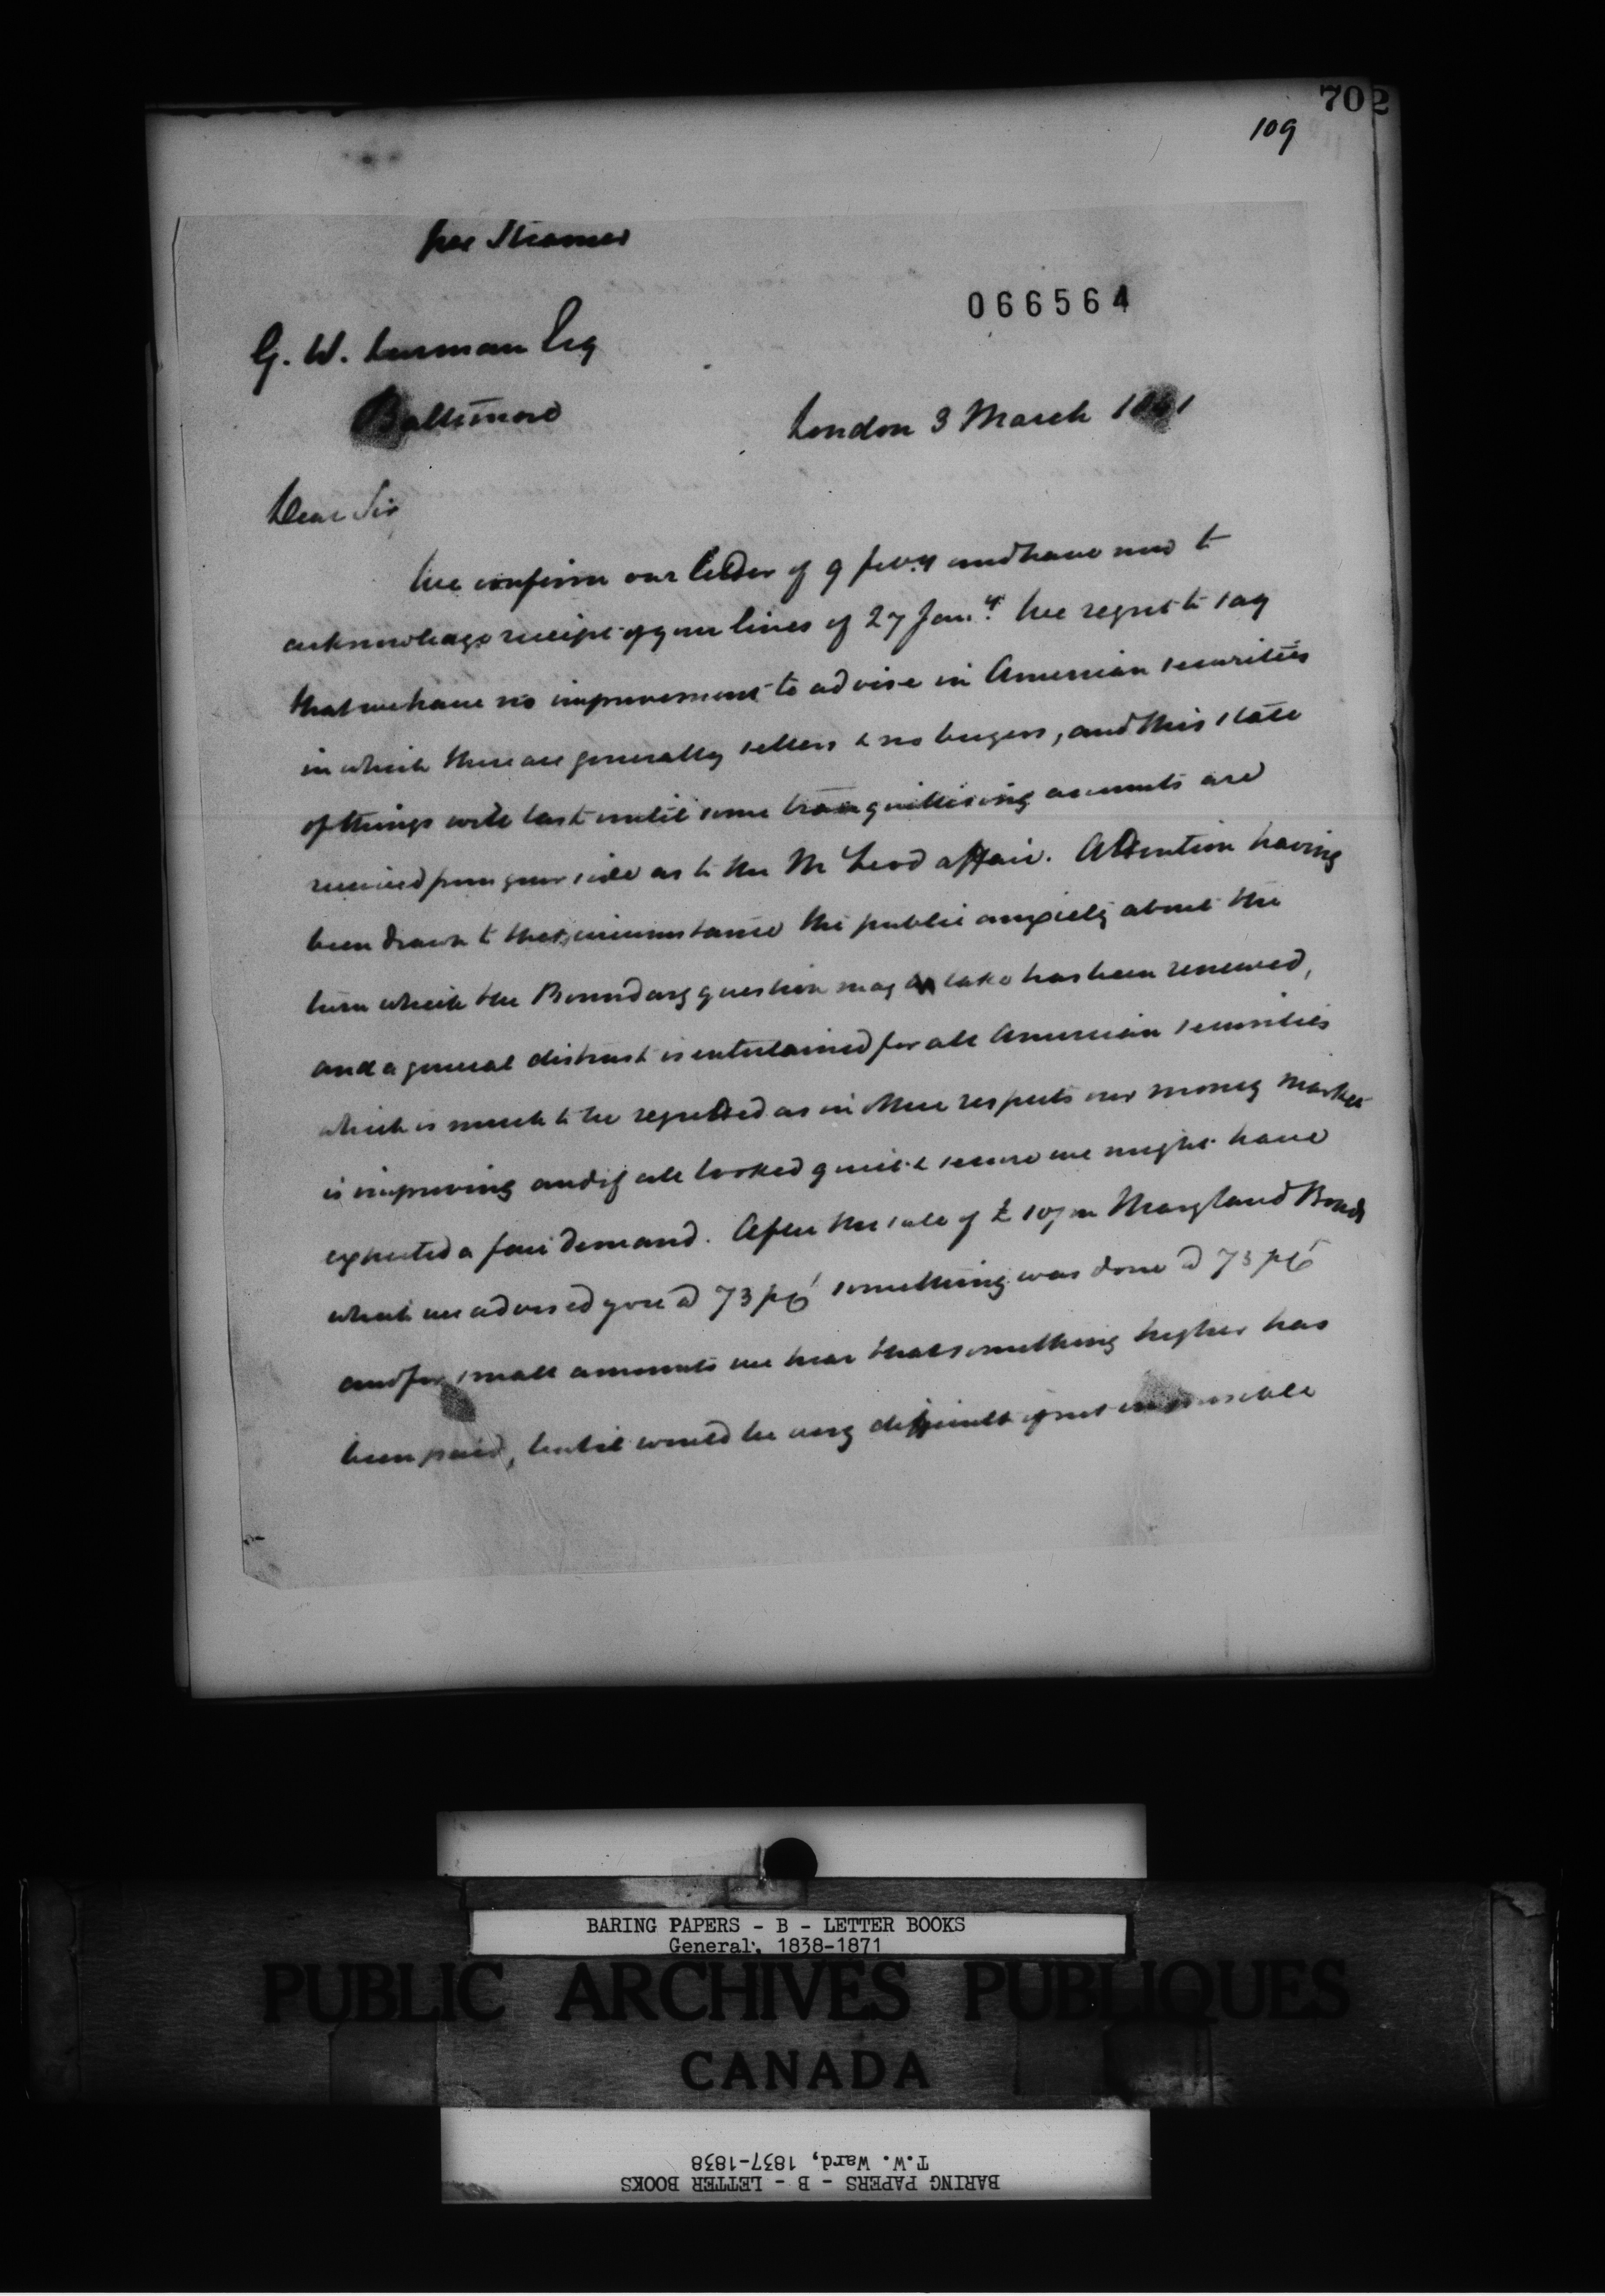 702
109
per Steamer
066564
G. W. Lurman Esq
Baltimore
London 3 March 1841
Dear Sir
We confirm our letter of 9 feby and have now to
acknowledge receipt of your lines of 27 Jany. We regret to say
that we have no improvement to advise in American securities
in which there are generally sellers & no buyers, and this state
of things will last until some tranquillising accounts are
received from your side as to the McLeod affair. Attention having
been drawn to that circumstance the public anxiety about the
turn which the Boundary question may take has been renewed,
and a general distrust is entertained for all American securities
which is much to be regretted as in other respects our money market
is improving and if all looked quiet & secure we might have
expected a fair demand. After the sale of £ 10/m Maryland Bonds
which we advised you @ 73 pCt something was done @ 73 pCt
and for small amounts we hear that something higher has
been paid, but it would be very difficult if not impossible
BARING PAPERS - B - LETTER BOOKS
General, 1838-1871
PUBLIC ARCHIVES PUBLIQUES
CANADA
T.W. Ward, 1837-1838
BARING PAPERS - B - LETTER BOOKS